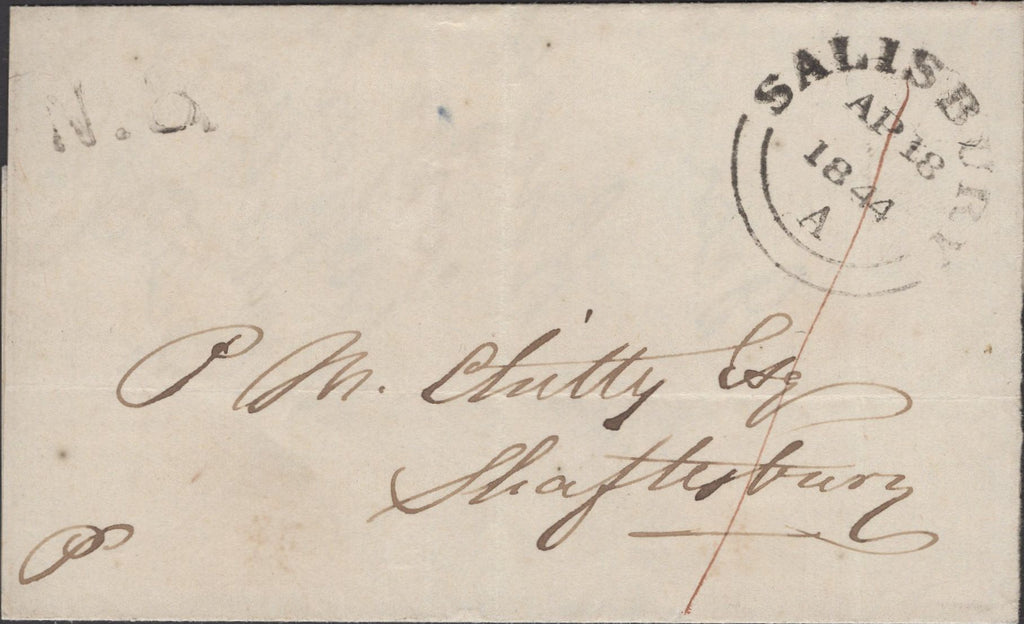 N. 5.
SALISBURY
AP 18
1844
A
P M. Chitty Esq
Shaftesbury
P